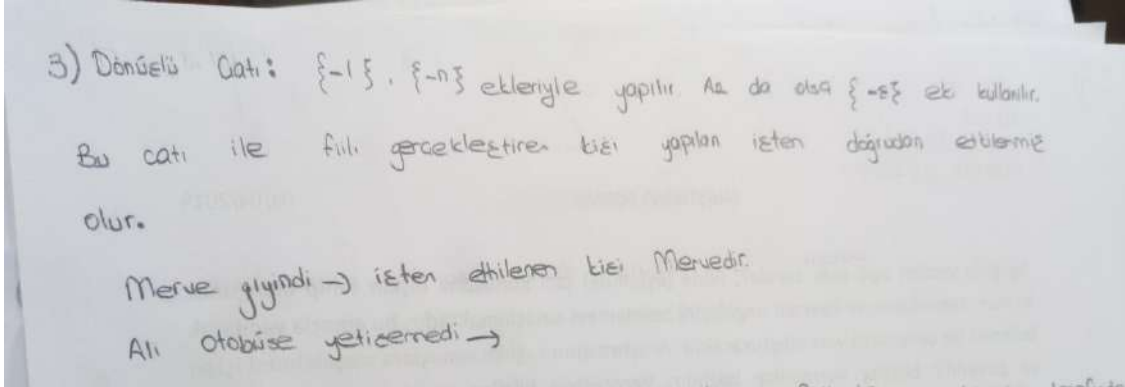 3) Dönüşlü Çatı: {-l}, {-n} ekleriyle yapılır. Az da olsa {-ş} eki kullanılır.
Bu çatı ile fiili gerçekleştiren kişi yapılan işten doğrudan etkilenmiş
olur.
Merve giyindi → işten etkilenen kişi Mervedir.
Ali otobüse yetişemedi →